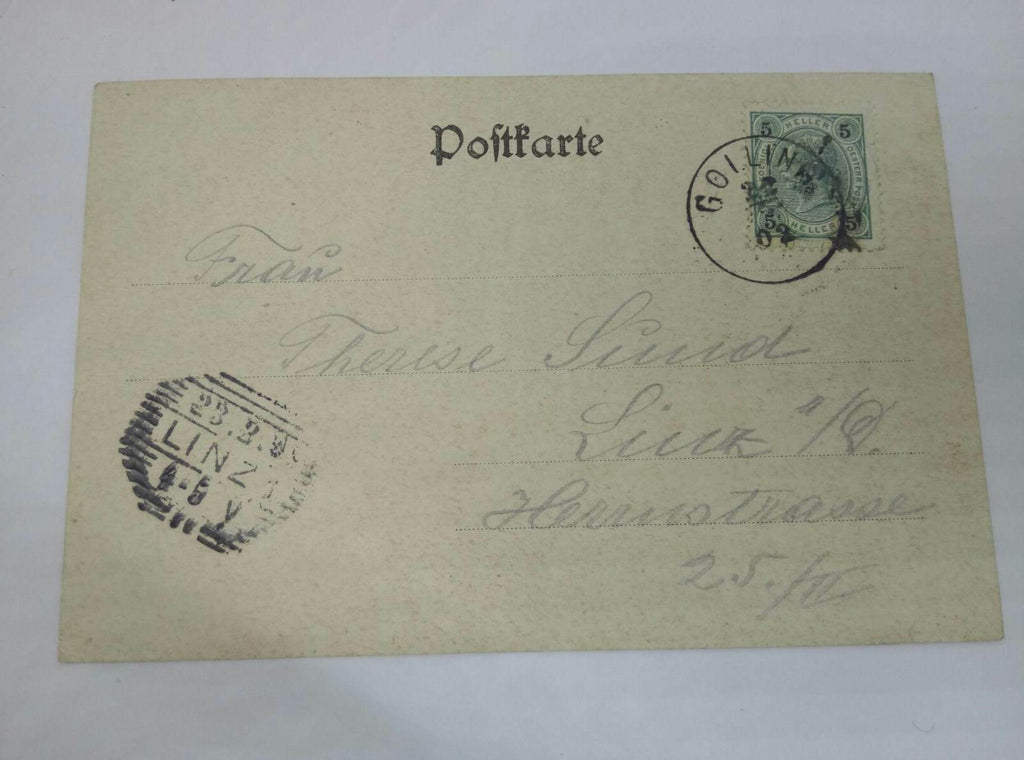 Postkarte
5 HELLER 5
5 HELLER 5
GOLLING
02
Frau
Therese Smid
Linz a/D.
Herrnstrasse
25./II
23.3.
LINZ
4-5 V